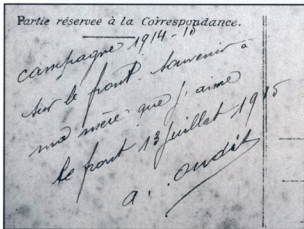 Partie réservée à la Correspondance.
campagne 1914-15
sur le front. Souvenir à
ma mère que j'aime
le front 13 juillet 1915
a.